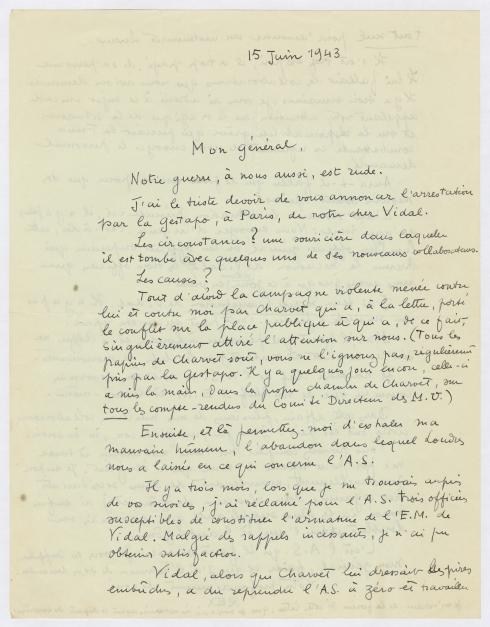 15 Juin 1943
Mon général,
Notre guerre, à nous aussi, est rude.
J'ai le triste devoir, de vous annoncer l'arrestation
par la Gestapo, à Paris, de notre cher Vidal.
Les circonstances ? une souricière dans laquelle
il est tombé avec quelques uns de ses nouveaux collaborateurs.
Les causes ?
Tout d'abord la campagne violente menée contre
lui et contre moi par Charvet qui a, à la lettre, porté
le conflit sur la place publique et qui a, de ce fait,
singulièrement attiré l'attention sur nous. (Tous les
papiers de Charvet sont, vous ne l'ignorez pas, régulièrement
pris par la Gestapo. Il y a quelques jours encore, celle-ci
a mis la main, dans la propre chambre de Charvet, sur
tous les compte-rendus du Comité Directeur des M.U.)
Ensuite, et là permettez-moi d'exhaler ma
mauvaise humeur, l'abandon dans lequel Londres
nous a laissés en ce qui concerne l'A.S.
Il y a trois mois, lors que je me trouvais auprès
de vos services, j'ai réclamé pour l'A.S. trois officiers
susceptibles de constituer l'armature de l'E.M. de
Vidal. Malgré des rappels incessants, je n'ai pu
obtenir satisfaction.
Vidal, alors que Charvet lui dressait les pires
embûches, a du reprendre l'A.S. à zéro et travailler